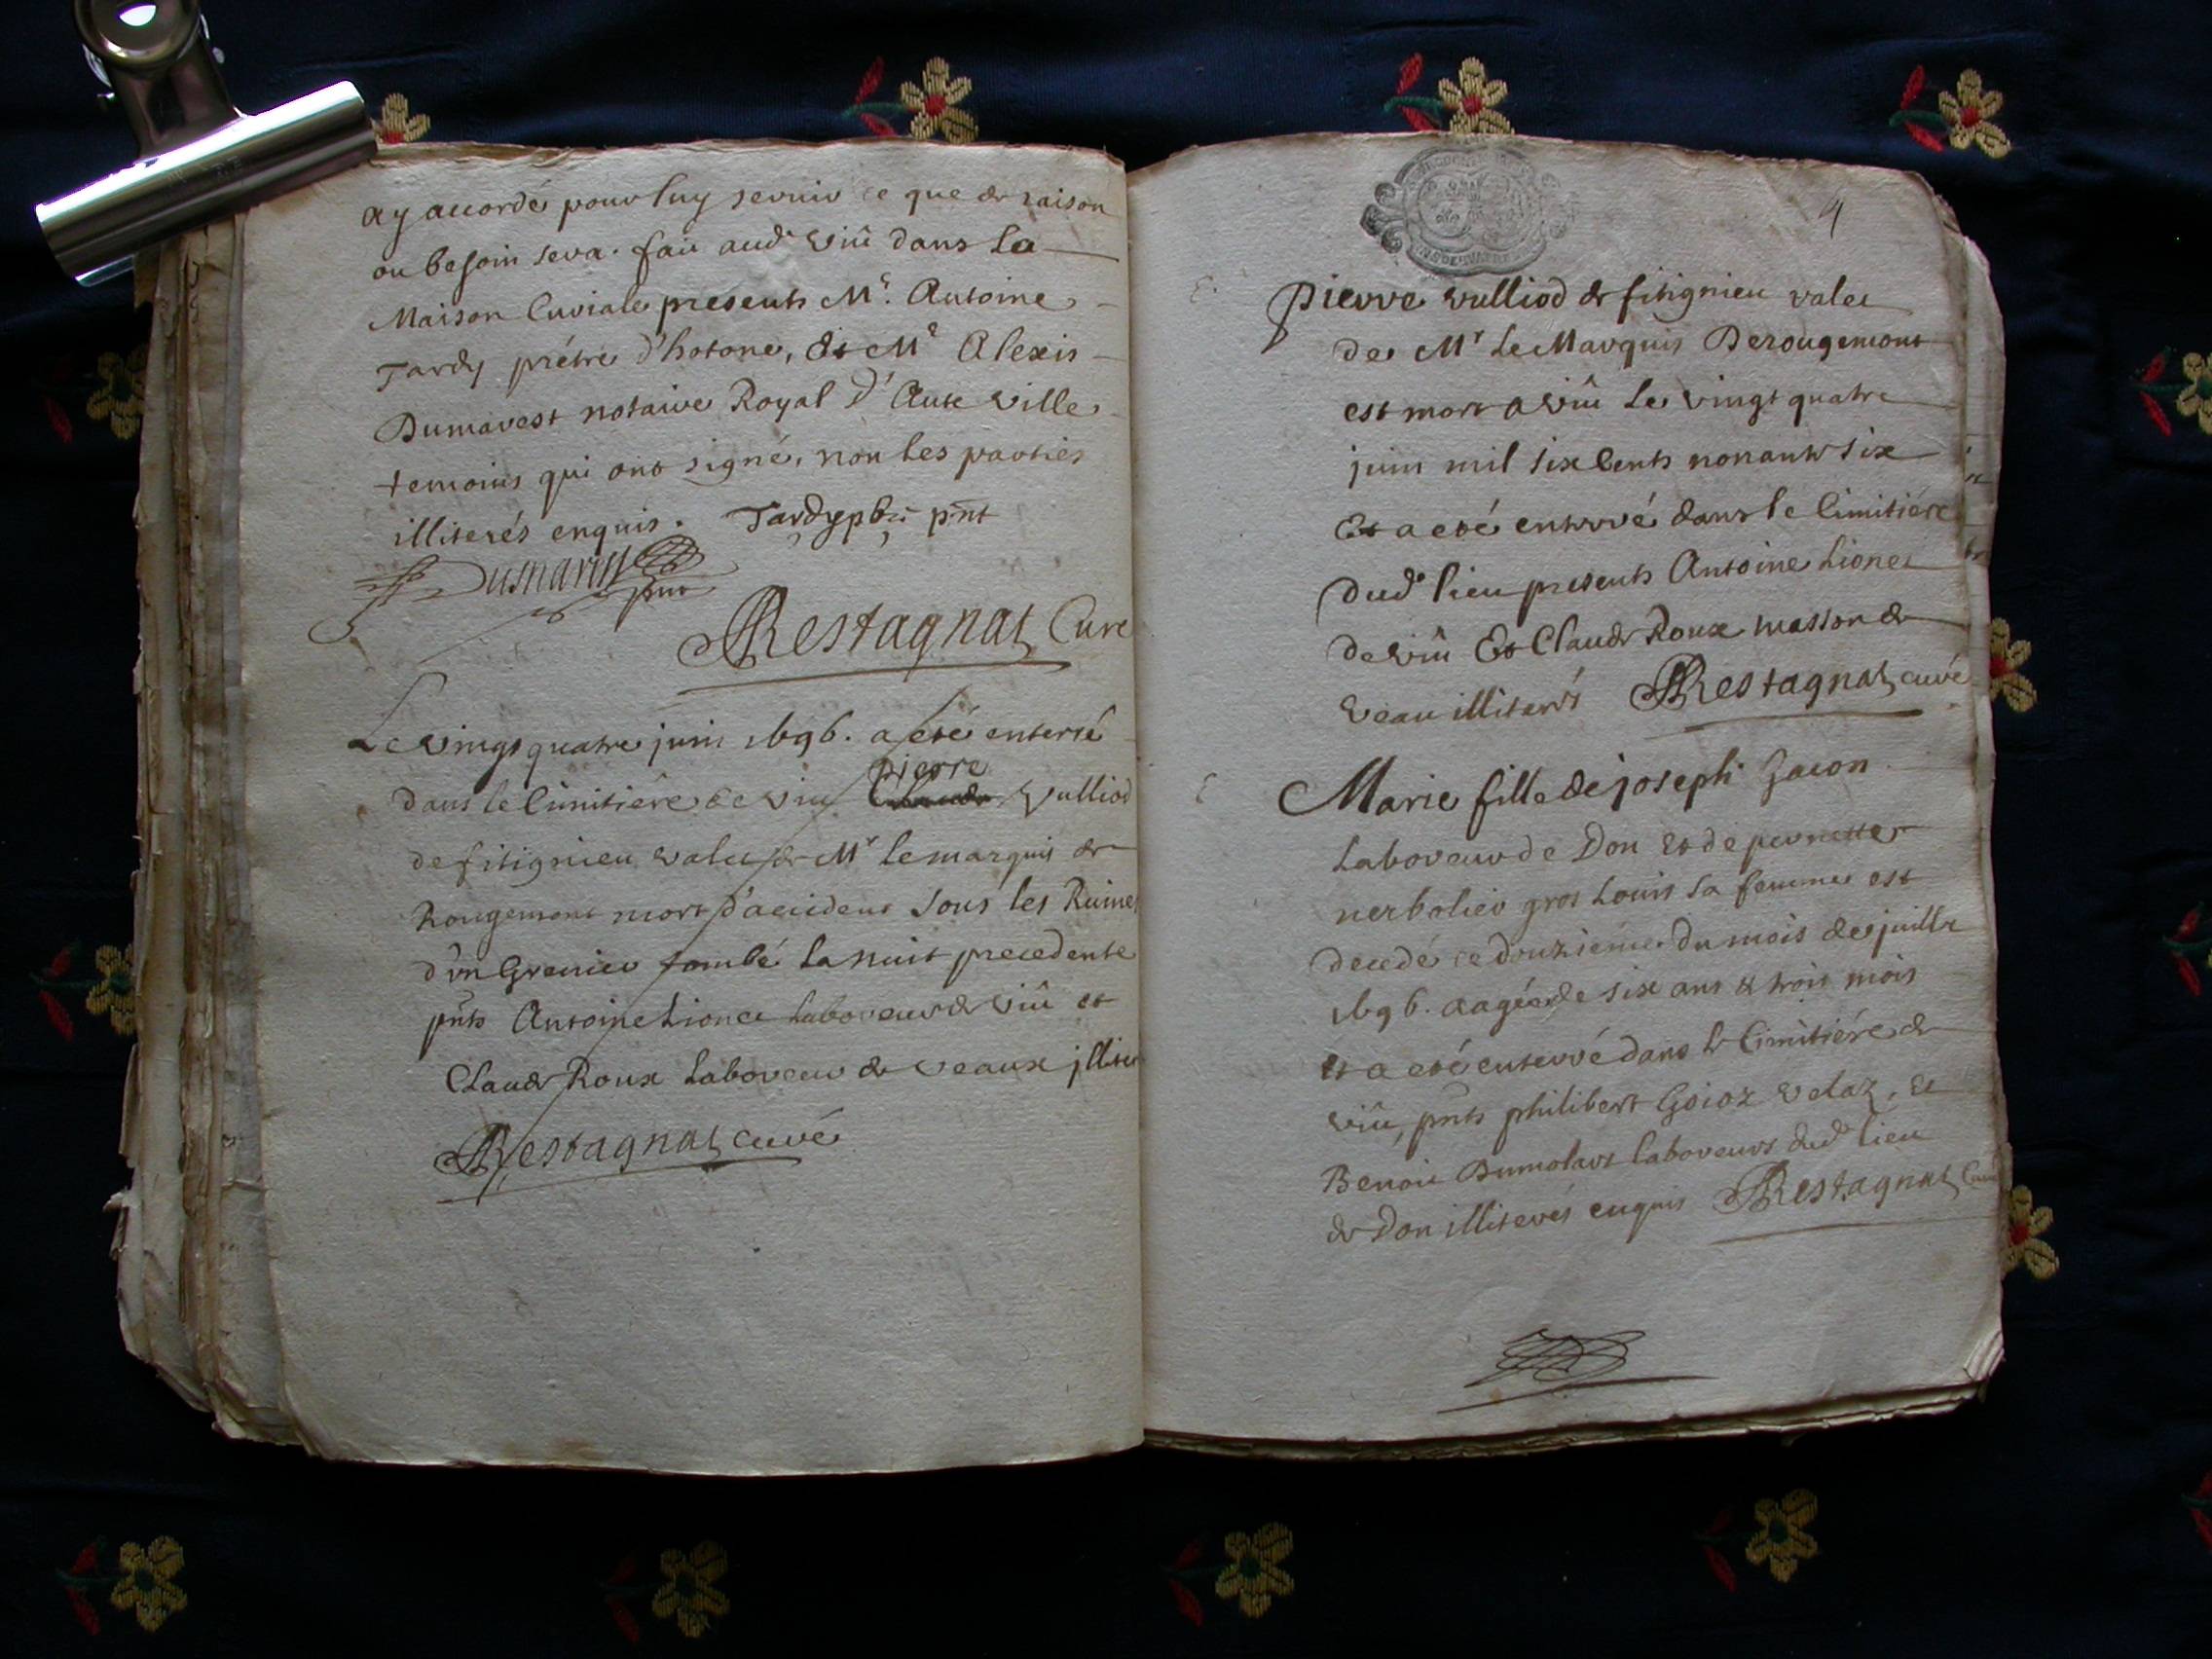 ay accordé pour luy servir ce que de raison
ou besoin sera. fait aud.ᵗ Viû dans La
Maison Curiale presents Mʳ. Antoine
Tardy prétre d'hotone, Et Mᵉ Alexis
Dumarest notaire Royal d'Aute Ville
temoins qui ont signé, non les parties
illiterés enquis. Tardy pbr̃ pñt
Dumarest pñt
Restagnat Curé
Le vingt quatre juin 1696. a eté enterré
dans le Cimitiére de viu Pierre Vulliod
de fitignieu valet de Mʳ le marquis de
Rougemont mort d'accident sous les Ruines
d'vn Grenier tombé La nuit precedente
pñts Antoine Lionet Laboreur de Viû et
Claude Roux Laboreur de Veaux jlliter
Restagnat curé
4
E.
Pierre vulliod de fitignieu valet
de Mʳ Le Marquis Derougemont
est mort a Viû Le vingt quatre
juin mil six Cents nonante six
Et a eté enterré dans le Cimitiére
dud.ᵗ lieu presents Antoine Lionet
de viû Et Claude Roux masson de
Veau illiterés Restagnat curé
E
Marie fille de joseph Jacon
Laboreur de Don et de pernette
nerbolier gros Louis sa femme est
decedé ce douzieme du mois de juillet
1696. aageé de six ans & trois mois
et a eté enterré dans le Cimitiére de
viû, pñts philibert Goioz Velaz, et
Benoit Dumolart laboreurs dud.ᵗ lieu
de Don illiterés enquis Restagnat Curé